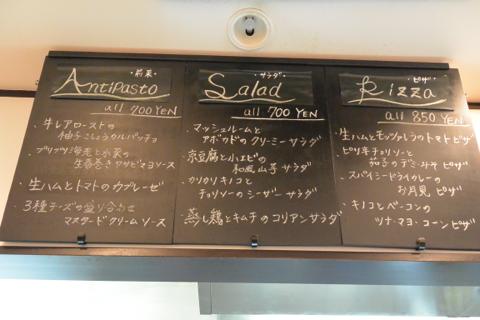 ・前菜・
Antipasto
all 700 YEN
・牛レアローストの
柚子こしょうカルパッチョ
・プリップリ海老と水菜の
生春巻きワサビマヨソース
・生ハムとトマトのカプレーゼ
・3種チーズの盛り合わせ
マスタードクリームソース
・サラダ・
Salad
all 700 YEN
・マッシュルームと
アボカドのクリーミーサラダ
・京豆腐と小エビの
和風山芋サラダ
・カリカリキノコと
チョリソーのシーザーサラダ
・蒸し鶏とキムチのコリアンサラダ
・ピザ・
Pizza
all 850 YEN
・生ハムとモッツァレラのトマトピザ
・ピリ辛チョリソーと
茄子のデミ ピザ
・スパイシードライカレーの
お月見ピザ
・キノコとベーコンの
ツナ・マヨ・コーンピザ